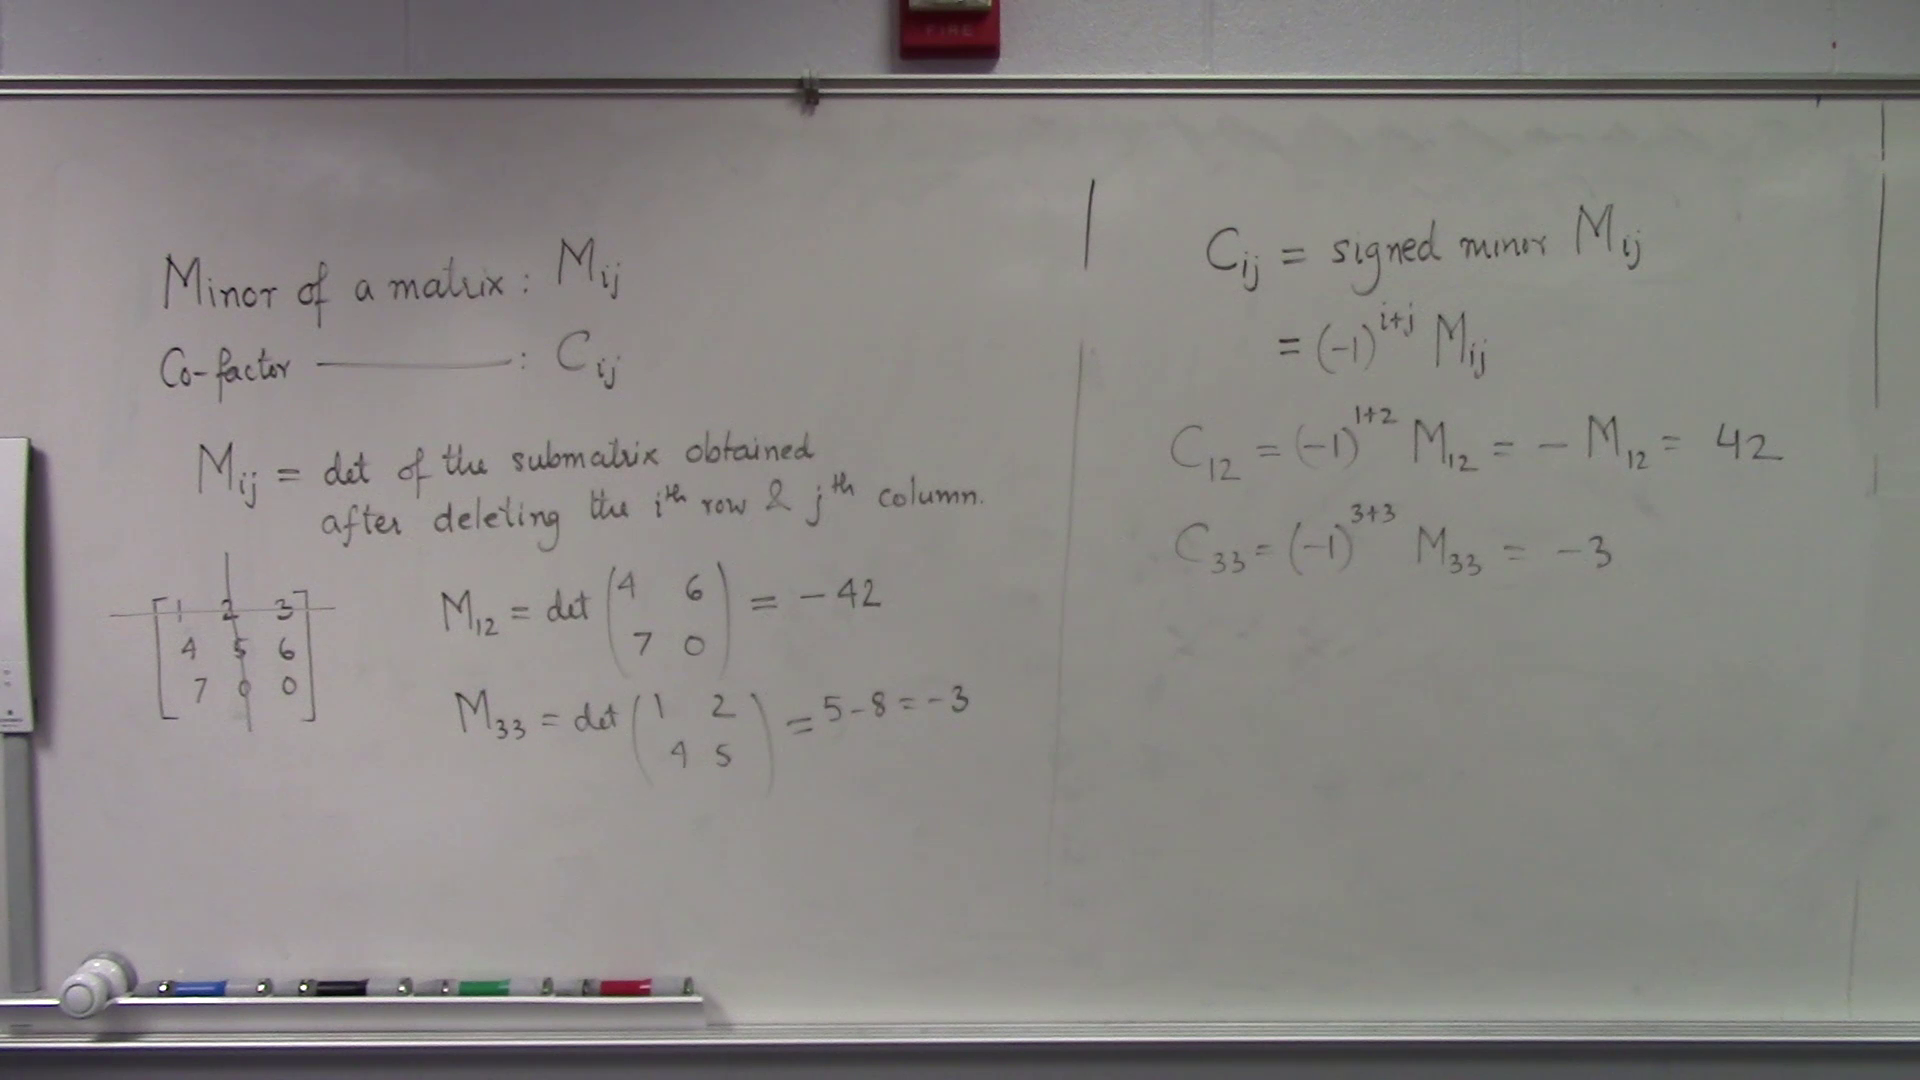 FIRE
Minor of a matrix : Mij
Co-factor ——— : Cij
Mij = det of the submatrix obtained
after deleting the ith row & jth column.
[1 2 3
4 5 6
7 0 0]
M12 = det (4 6
7 0) = -42
M33 = det (1 2
4 5) = 5-8 = -3
Cij = signed minor Mij
= (-1)^i+j Mij
C12 = (-1)^1+2 M12 = - M12 = 42
C33 = (-1)^3+3 M33 = -3